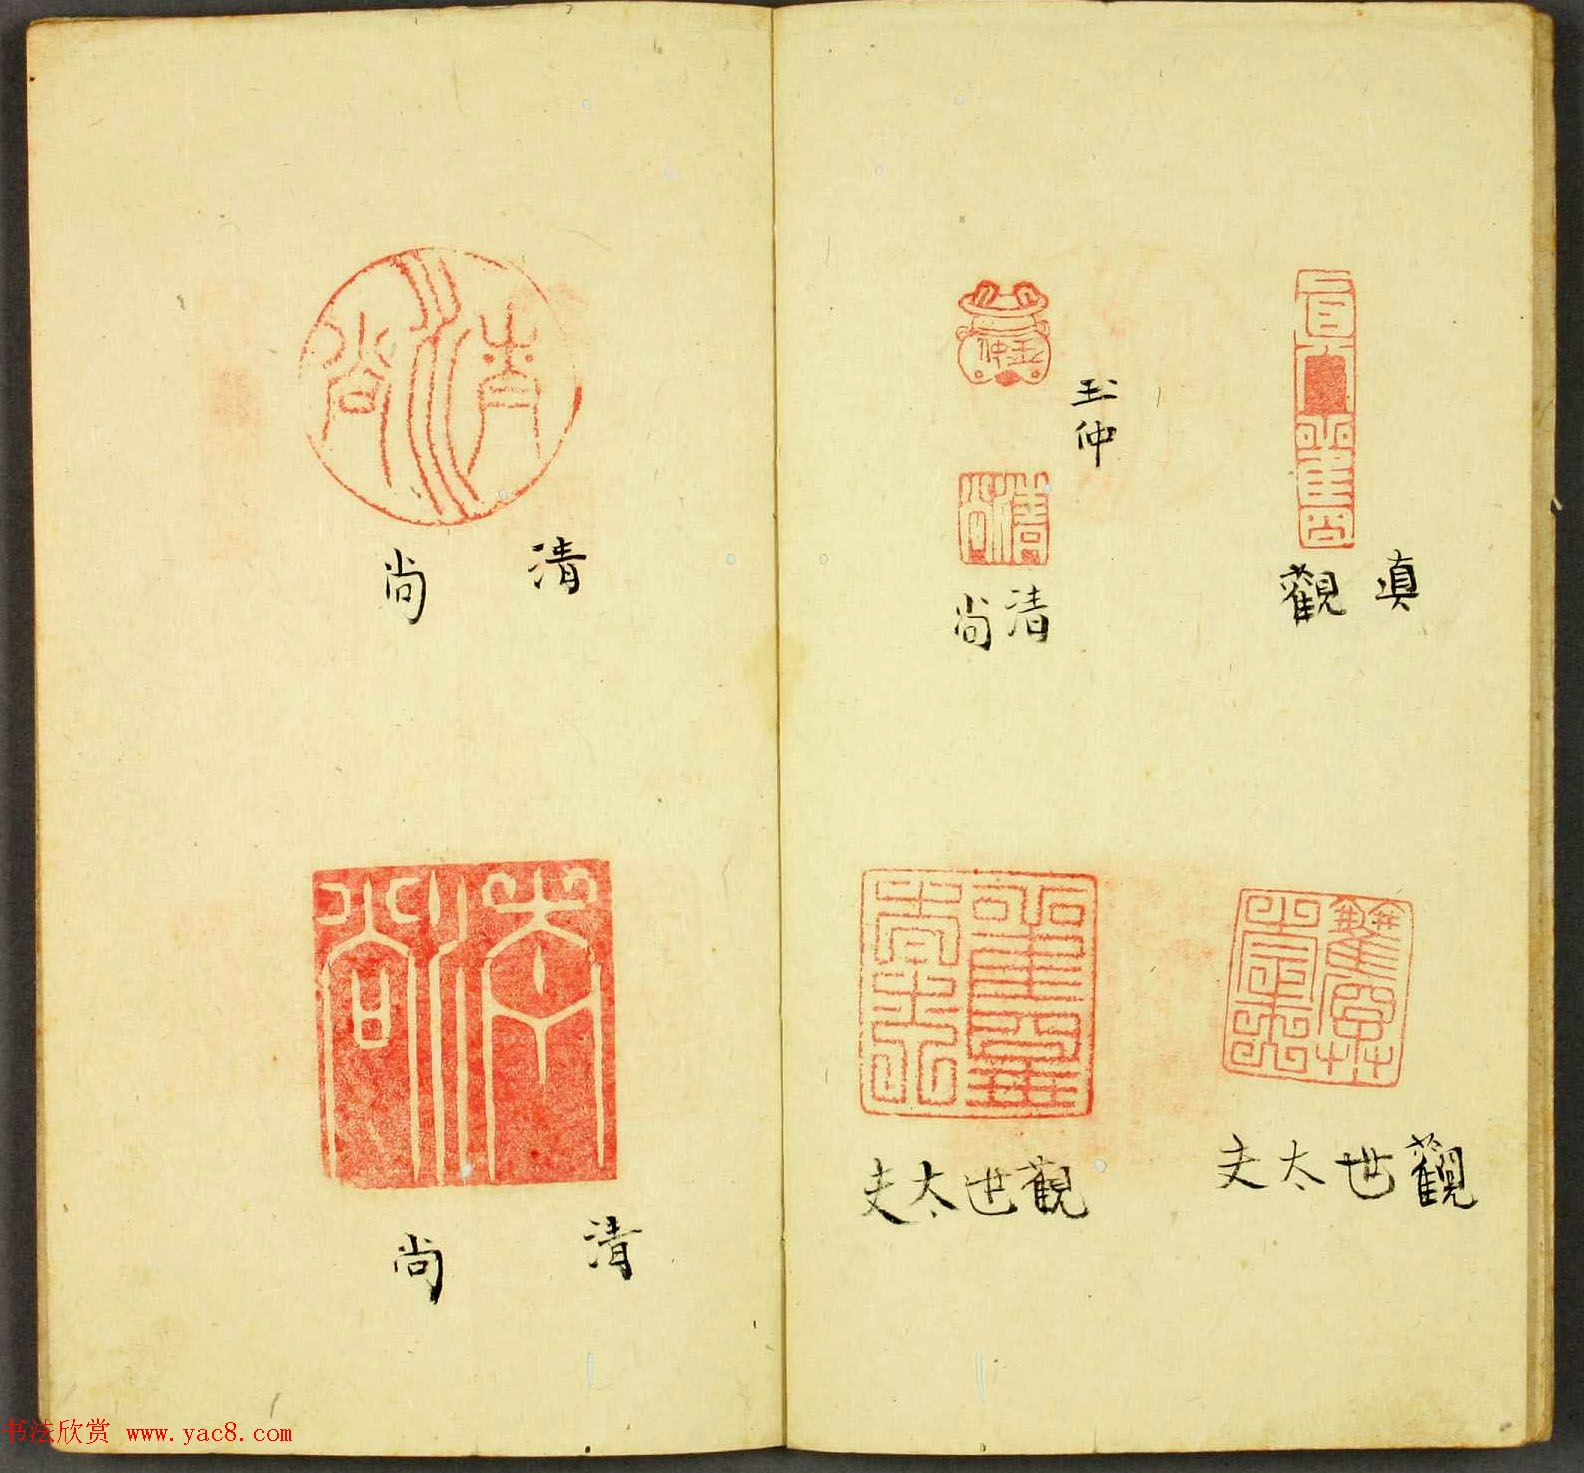 眞觀
玉仲
清尚
觀世太夫
觀世太夫
清尚
清尚
书法欣赏 www.yac8.com